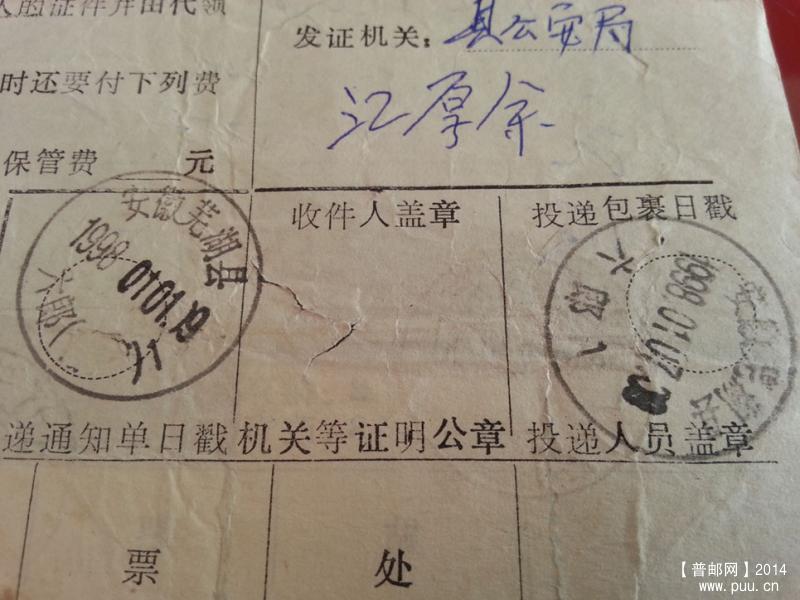 人的证件并由代领
发证机关：县公安局
时还要付下列费
江厚余
保管费 元
收件人盖章
投递包裹日戳
安徽芜湖县
1998
六郎
安徽芜湖县
六郎
1998.01.07
递通知单日戳
机关等证明公章
投递人员盖章
票 处
【普邮网】2014
www.puu.cn